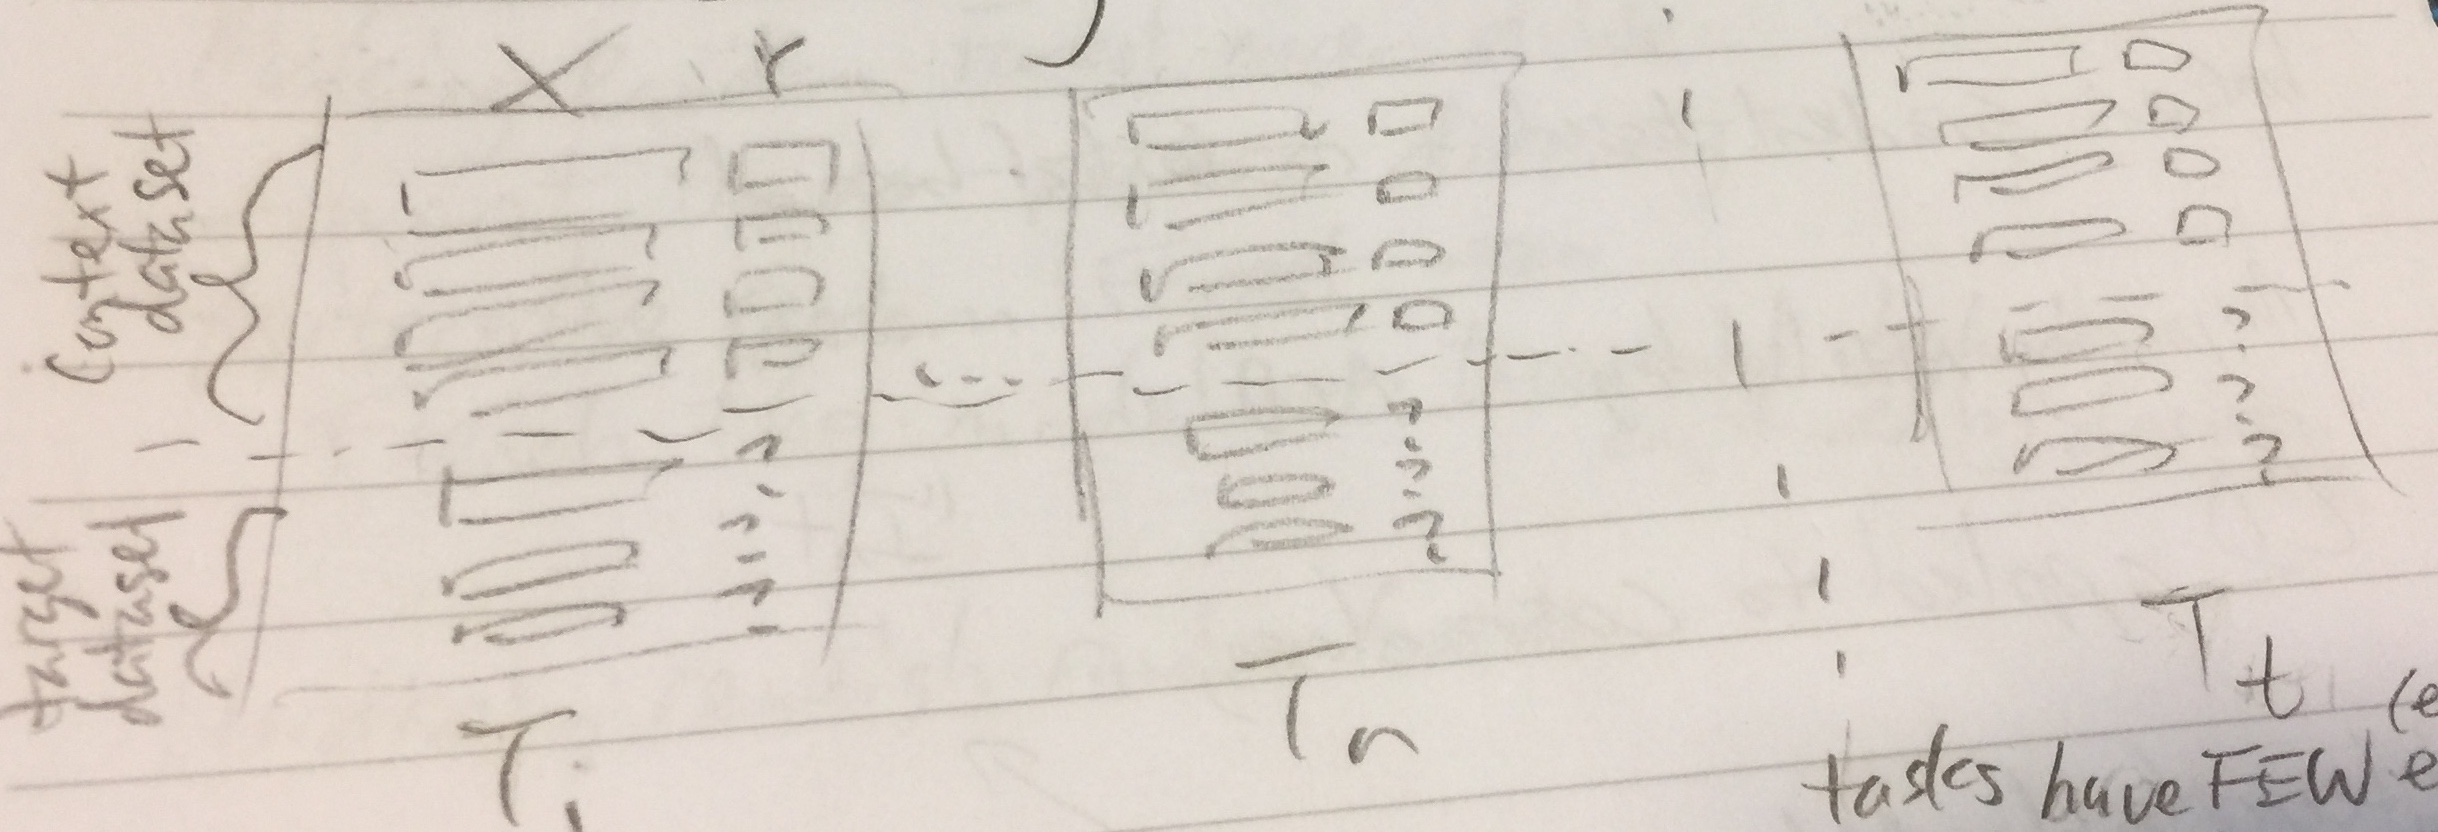 X Y
context
dataset
?
?
?
?
?
?
?
?
?
target
dataset
T
Tn
Tt (e
tasks have FEW e